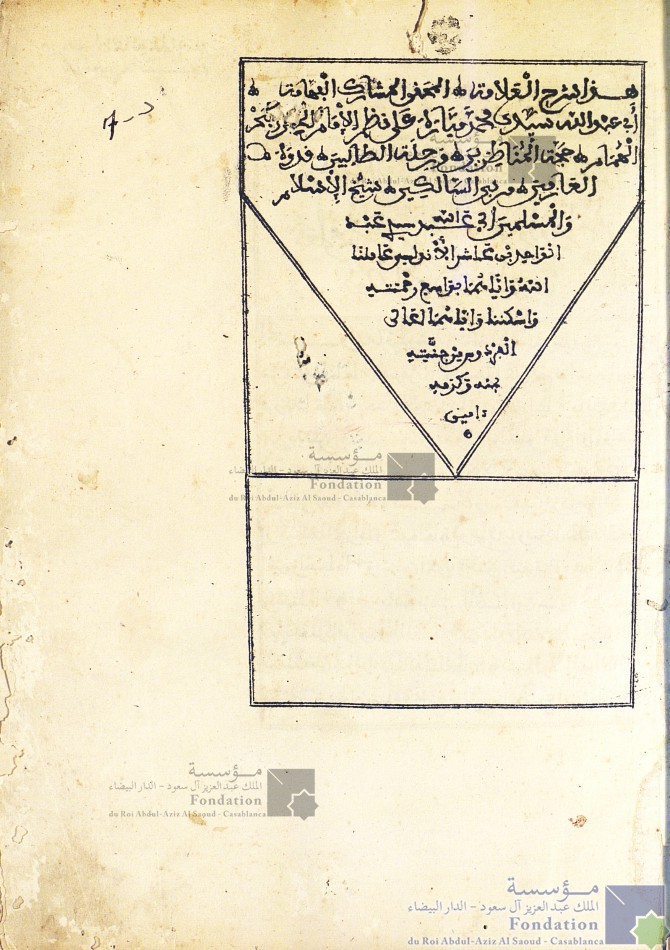 هذا شرح العلامة المحقق المشارك الفهامة
أبي عبد الله سيدي محمد ميارة على نظم الإمام
الهمام حجة المناظرين ورحلة الطالبين قدوة
العارفين مربي السالكين شيخ الإسلام
والمسلمين أبي عبد الله سيدي عبد
الواحد بن عاشر الأندلسي عاملنا
الله وإياهما بواسع رحمته
وأسكننا وإياهما أعالي
الفردوس من جنته
بمنه وكرمه
ءامين
مؤسسة
الملك عبد العزيز آل سعود - الدار البيضاء
Fondation
du Roi Abdul-Aziz Al Saoud - Casablanca
مؤسسة
الملك عبد العزيز آل سعود - الدار البيضاء
Fondation
du Roi Abdul-Aziz Al Saoud - Casablanca
مؤسسة
الملك عبد العزيز آل سعود - الدار البيضاء
Fondation
du Roi Abdul-Aziz Al Saoud - Casablanca